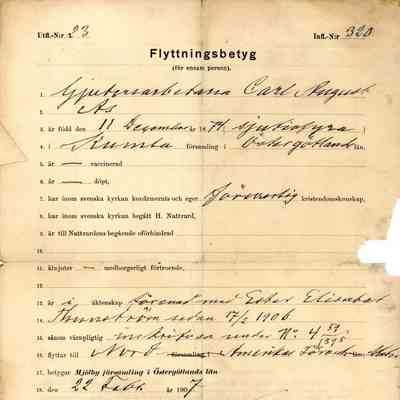 Utfl.-N:r 23 Infl.-N:r 320
Flyttningsbetyg
(för ensam person).
1. Carl August
2. As
3. är född den 11 December 1874 (sjuttiofyra)
4. i Kumla församling i Östergötlands län,
5. är — vaccinerad
6. är — döpt,
7. har inom svenska kyrkan konfirmerats och eger försvarlig kristendomskunskap,
8. har inom svenska kyrkan begått H. Nattvard,
9. är till Nattvardens begående oförhindrad
10.
11. åtnjuter — medborgerligt förtroende,
12.
13. är i äktenskap förenad med Ester Elisabet
14. Thunström sedan 17/2 1906
15. såsom värnpligtig inskrifven under No. 4 59/1895
16. flyttar till Nord församling i Amerikas Förenta Stater
17. betygar Mjölby församling i Östergötlands län
18. den 22 Febr. 1907